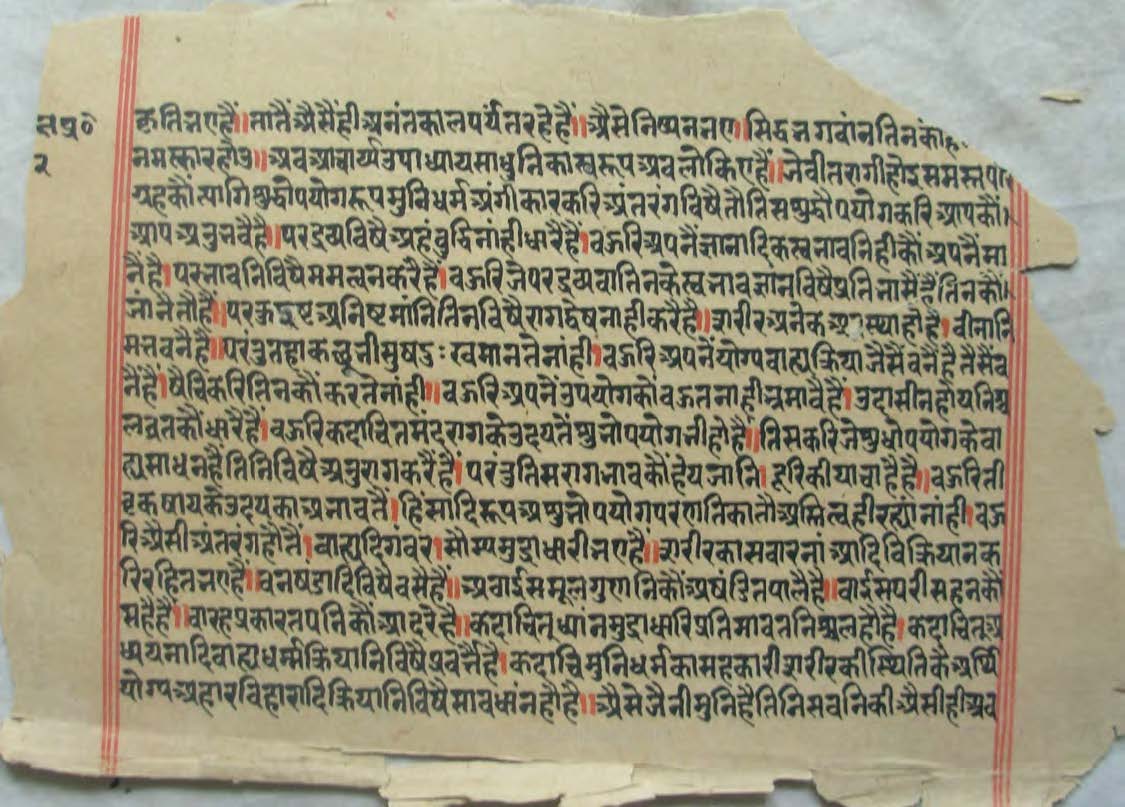 कृतिनएहैं॥तातैंऔसैंहीअनंतकालपर्यंतरहेहैं॥औसेनिष्पननए॥सिद्धनगवांनतिनकों
नमस्कारहोउ॥अवआचार्यउपाध्यायसाधुनिकास्वरूपअवलोकिएहैं॥जेवीतरागीहोइसमस्तप
ग्रहकौंत्यागिशुद्धोपयोगरूपमुनिधर्मअंगीकारकरिअंतरंगविषैतौतिसशुद्धोपयोगकरिआपकौं
आपअनुनवैहै॥परद्रव्यविषैअहंवुद्धिनांहीधारैहै।वऊरिअपनैंज्ञानादिकस्वनावनिहीकौंअपनैंमा
नैंहै।परनावनिविषैममत्वनकरैहैं।वऊरिजेपरद्रव्यवातिनकेस्वनावज्ञानविषैप्रतिनासैंहैंतिनकौं
जानैतौहैं॥परऊइष्टअनिष्टमांनितिनविषैरागद्वेषनाहीकरैहै॥शरीरअनेकअवस्थाहोहै।वीनानि
मत्तवनैहै॥परंतुतहाकछूनीसुषदुःखमानतेनांही।वऊरिअपनेंयोग्यवाह्यक्रियाजैसैंवनैंहैतैसैंव
नैंहैं।षैचिकरितिनकौंकरतेनांही॥वऊरिअपनेउपयोगकोवऊतनाहीभ्रमावैहैं।उदासीनहोयनिश्च
लव्रतकौंधारैहैं।वऊरिकदाचितमंदरागकेउदयतेंशुनोपयोगनीहोहै॥तिसकरिजेशुधोपयोगकेवा
ह्यसाधनहैंतिनिविषैअनुरागकरैंहैं।परंतुतिसरागनावकौंहेयजानि।दूरिकीयाचाहैहै॥वऊरिती
व्रकषायकेउदयकाअनावतैं।हिंसादिरूपअशुनोपयोगपरणतिकातौअस्तित्वहीरह्यांनाही।वऊ
रिऔसीअंतरंगहोतैं।वाह्यदिगंवर।सौम्यमुद्राधारीनएहैं॥शरीरकासवारनांआदिविक्रियानक
रिरहितनएहैं॥वनषंडादिविषैवसैहैं॥अवाईसमूलगुणनिकौंअषंडितपालैहै॥वाईसपरीसहनकौं
सहैहैं॥वारहप्रकारतपनिकौंआदरेहै॥कदाचितध्यांनमुद्राधारिप्रतिमावतनिश्चलहोहै।कदाचितअ
ध्ययनादिवाह्यधर्मक्रियानिविषैप्रवर्तैहै।कदाचिमुनिधर्मकासहकारीशरीरकीस्थितिकैअर्थि
योग्यअहारविहारादिक्रियानिविषैसावधानहोहै॥औसेजैनीमुनिहैतिनिसवनिकीऔसीहीअव